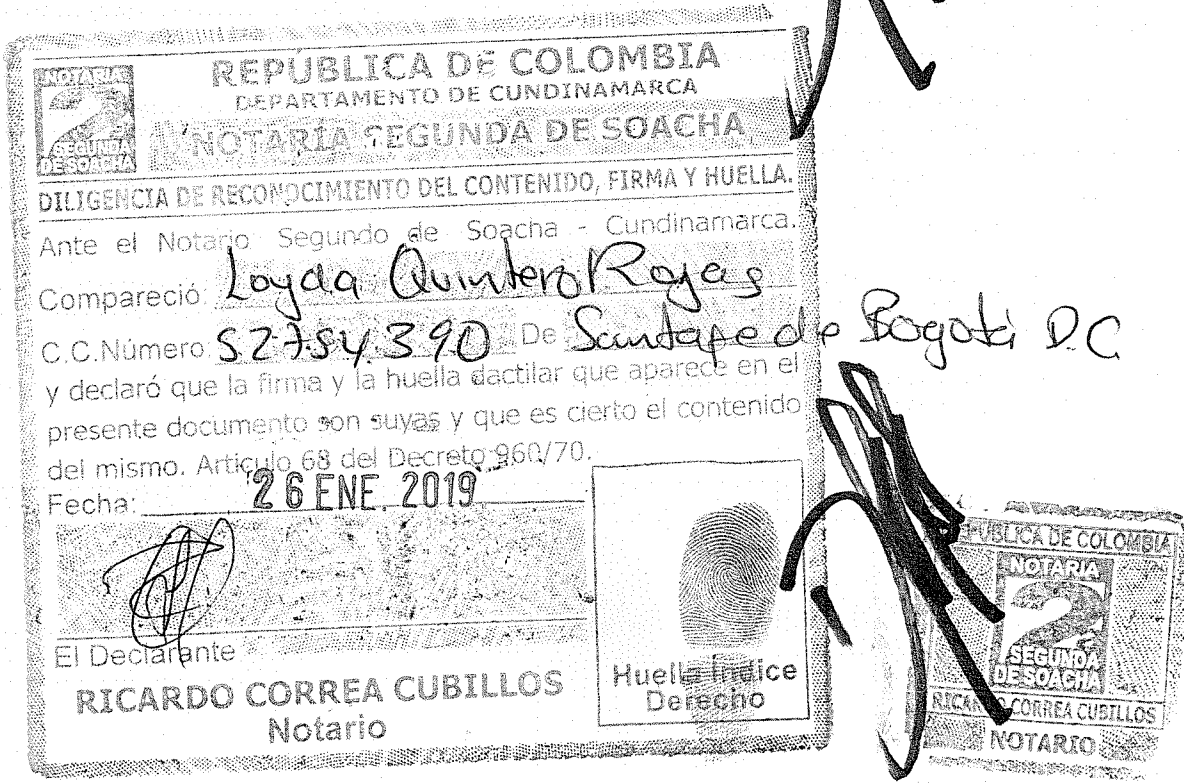 NOTARIA
2
SEGUNDA
DE SOACHA
REPÚBLICA DE COLOMBIA
DEPARTAMENTO DE CUNDINAMARCA
NOTARÍA SEGUNDA DE SOACHA
DILIGENCIA DE RECONOCIMIENTO DEL CONTENIDO, FIRMA Y HUELLA.
Ante el Notario Segundo de Soacha - Cundinamarca.
Compareció: Loyda Quintero Rojas
C.C.Número 52.754.390 De Santafe de Bogotá D.C
y declaró que la firma y la huella dactilar que aparece en el
presente documento son suyas y que es cierto el contenido
del mismo. Artículo 68 del Decreto 960/70.
Fecha: 26 ENE. 2019
El Declarante
RICARDO CORREA CUBILLOS
Notario
Huella Indice
Derecho
REPUBLICA DE COLOMBIA
NOTARIA
2
SEGUNDA
DE SOACHA
RICARDO CORREA CUBILLOS
NOTARIO